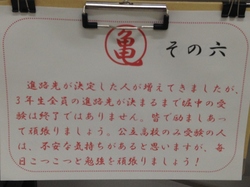 亀 その六
進路先が決定した人が増えてきましたが、
3年生全員の進路先が決まるまで堀中の受
験は終了ではありません。皆で励ましあっ
て頑張りましょう。公立高校のみ受検の人
は、不安な気持ちがあると思いますが、毎
日こつこつと勉強を頑張りましょう!